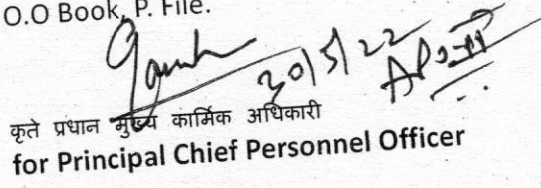 O.O Book, P. File.
30/5/22
कृते प्रधान मुख्य कार्मिक अधिकारी
for Principal Chief Personnel Officer